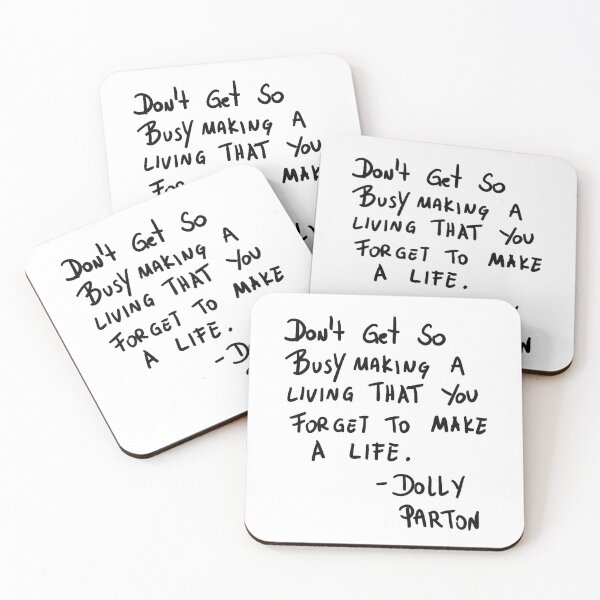 Don't Get So
Busy MAKING A
LIVING THAT You
FOR
MAK
Don't Get So
Busy MAKING A
LIVING THAT You
FORGET TO MAKE
A LIFE.
Don't Get So
Busy MAKING A
LIVING THAT You
FORGET TO MAKE
A LIFE.
-Do
Don't Get So
Busy MAKING A
LIVING THAT You
FORGET TO MAKE
A LIFE.
-DOLLY
PARTON